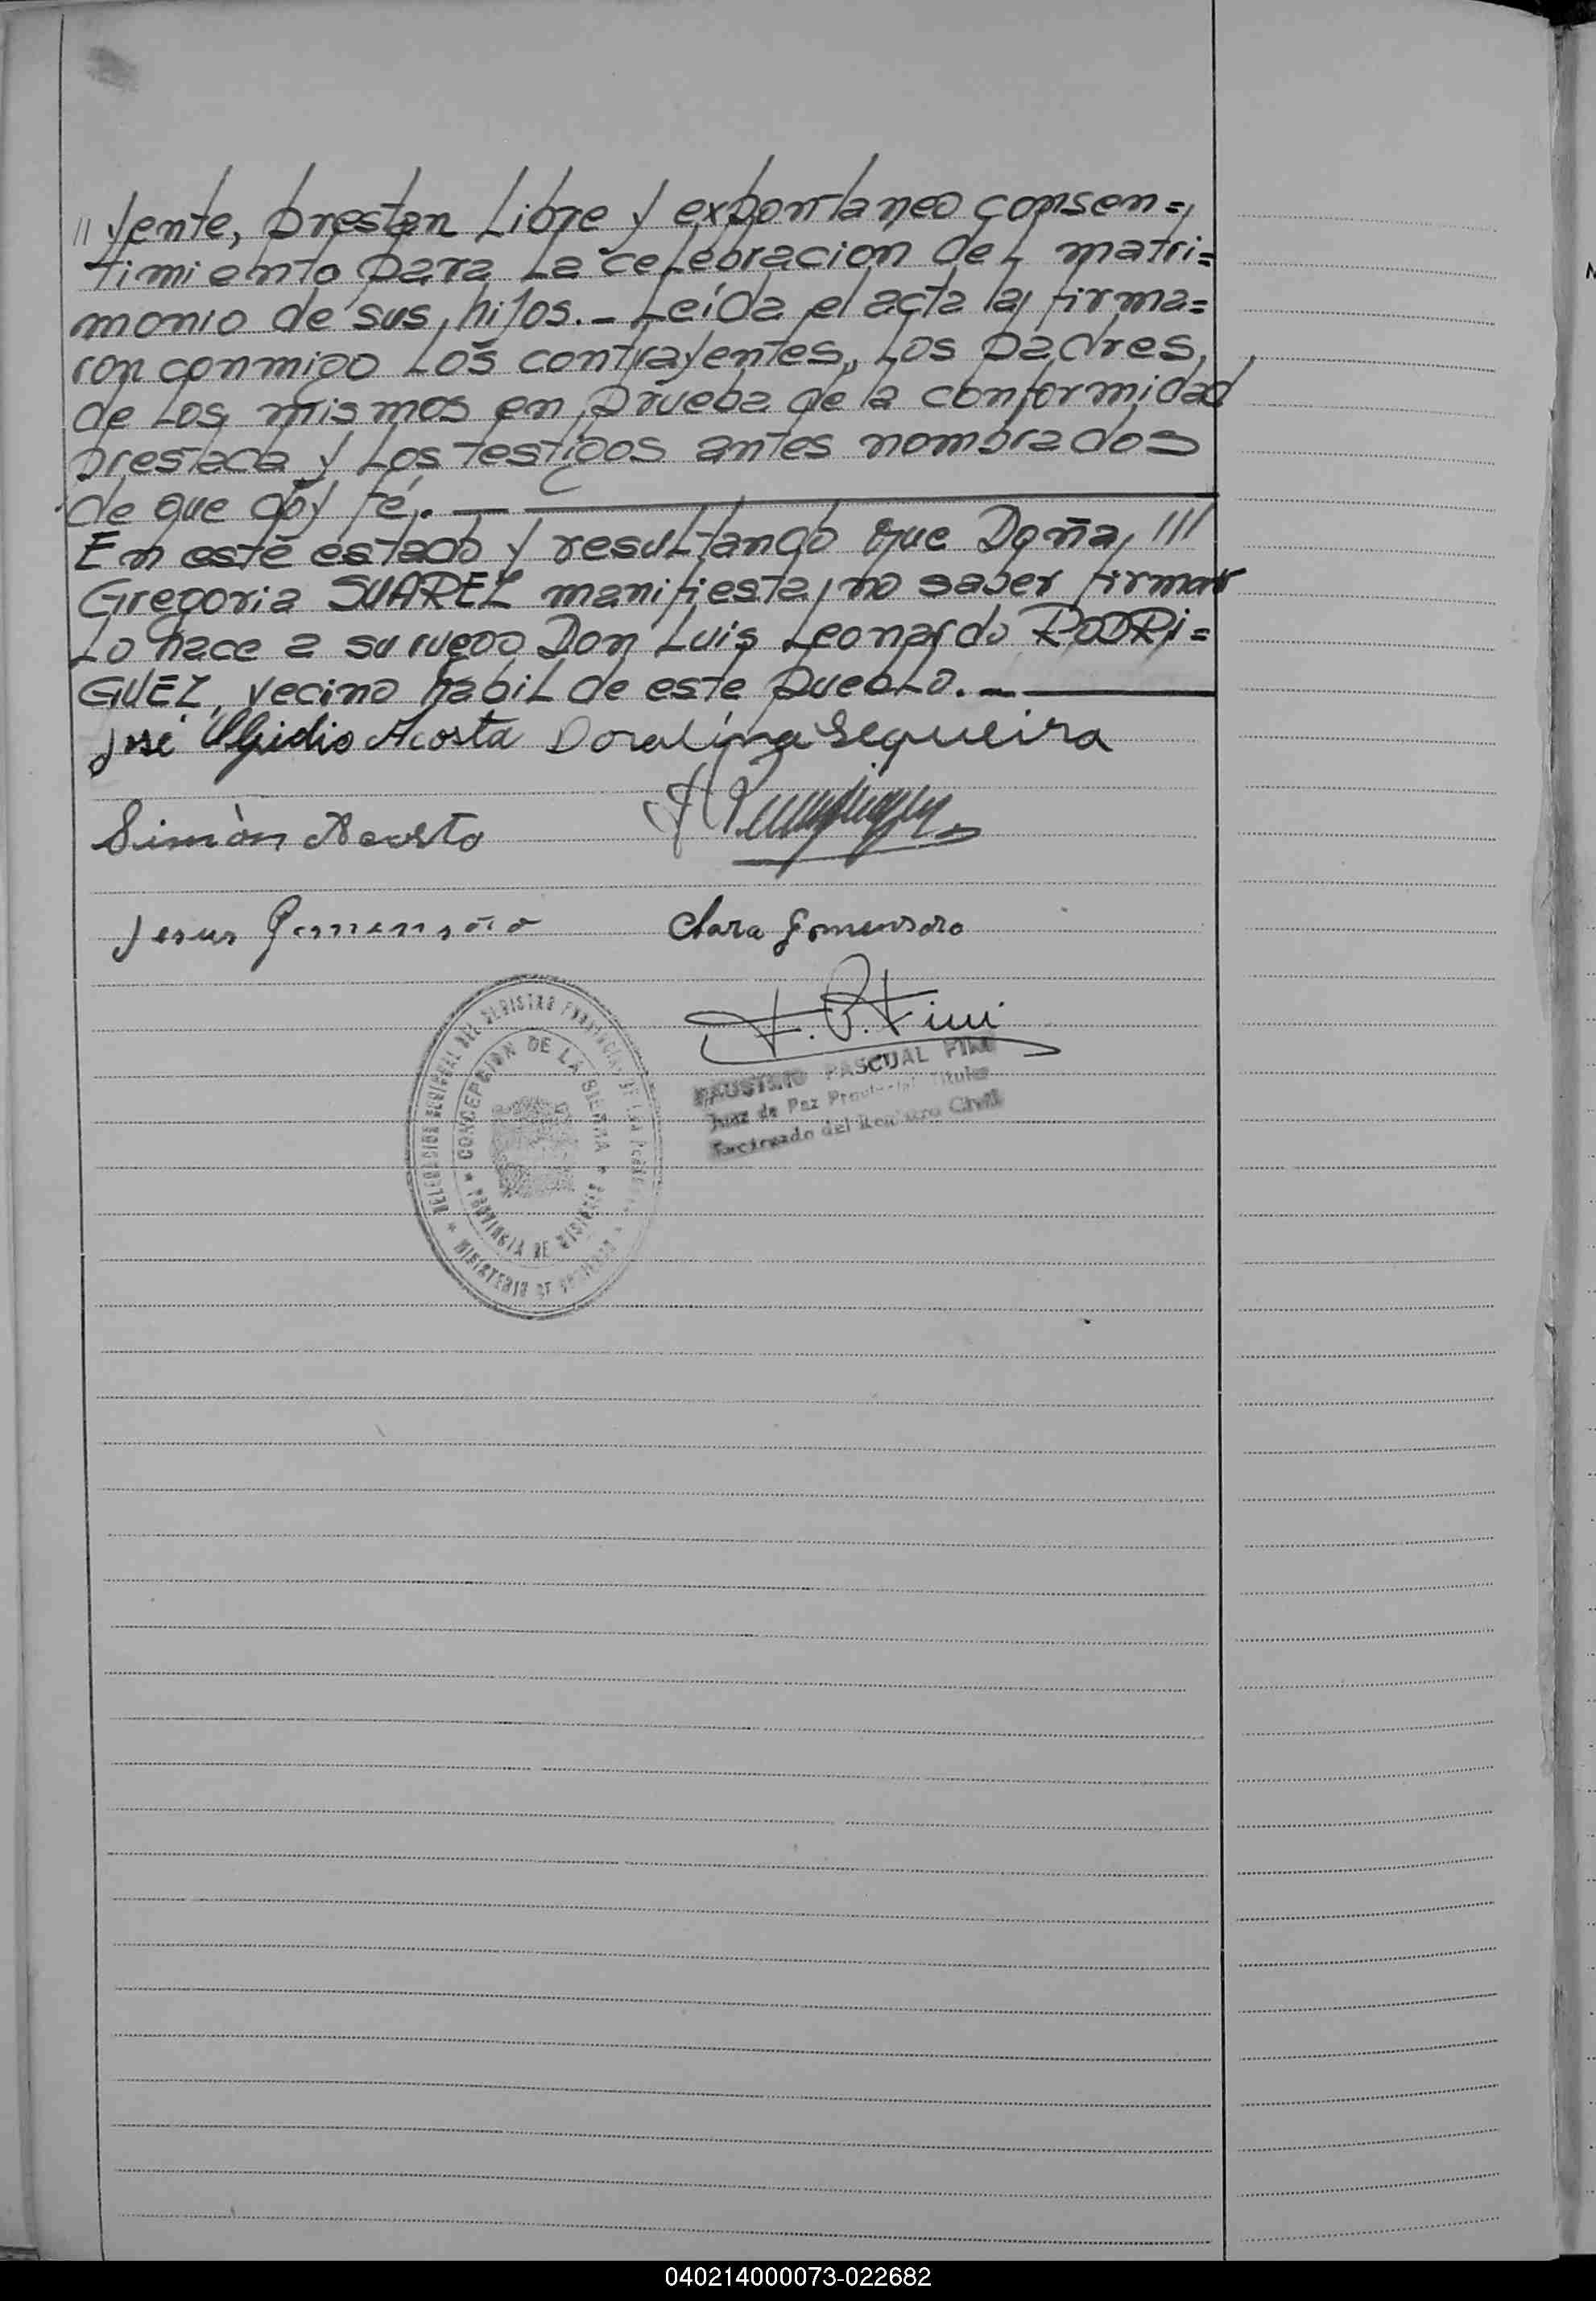 "yente, prestan libre y expontaneo consen=
timiento para la celebracion del matri=
monio de sus hijos.- Leída el acta la firma=
ron conmigo los contrayentes, los padres,
de los mismos en prueba de la conformidad
prestada y los testigos antes nombrados
de que doy fé.-
En este estado y resultando que Doña ///
Gregoria SUAREZ manifiesta no saber firmar
lo hace a su ruego Don Luis Leonardo RODRI=
GUEZ, vecino habil de este pueblo.-
José Eligidio Acosta Doralina Sequeira
Simòn Acosta
Jesus Gomensoro Clara Gomensoro
F. P. Fini
FAUSTINO PASCUAL FINI
Juez de Paz Provincial Titular
Encargado del Registro Civil
DELEGACION SECCIONAL DEL REGISTRO PROVINCIAL DE LAS PERSONAS
CONCEPCION DE LA SIERRA
PROVINCIA DE MISIONES
MINISTERIO DE GOBIERNO
040214000073-022682